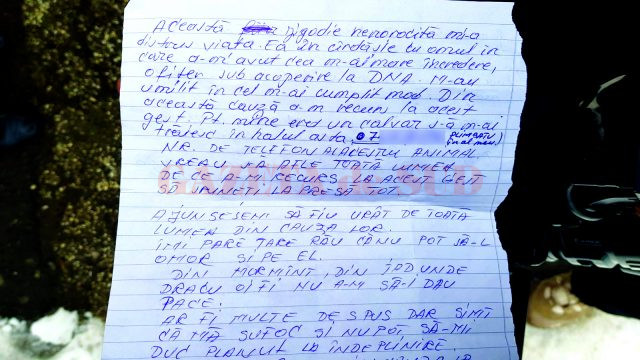 Această jigodie nenorocită mi-a
distrus viața. Ea în cîrdășie cu omul în
care a-m avut cea m-ai mare încredere,
ofițer sub acoperire la DNA. M-au
umilit în cel m-ai cumplit mod. Din
această cauză a-m recurs la acest
gest. Pt. mine era un calvar s-a m-ai
trăiesc în halul ăsta, 07 PLIMBATU
NR. DE TELEFON AL ACESTUI ANIMAL
VREAU SA AFLE TOATĂ LUMEA
DE CE A-M RECURS LA ACEST GEST
SĂ SPUNEȚI LA PRESĂ TOT.
AJUNSESEM SĂ FIU URÂT DE TOATĂ
LUMEA DIN CAUZA LOR.
ÎMI PARE TARE RĂU CĂ NU POT SĂ-L
OMOR SI PE EL.
DIN MORMÎNT, DIN IAD UNDE
DRACU OI FI NU A-M SĂ-I DAU
PACE.
AR FI MULTE DE SPUS DAR SIMT
CĂ MĂ SUFOC ȘI NU POT SĂ-MI
DUC PLANUL LA ÎNDEPLINIRE.